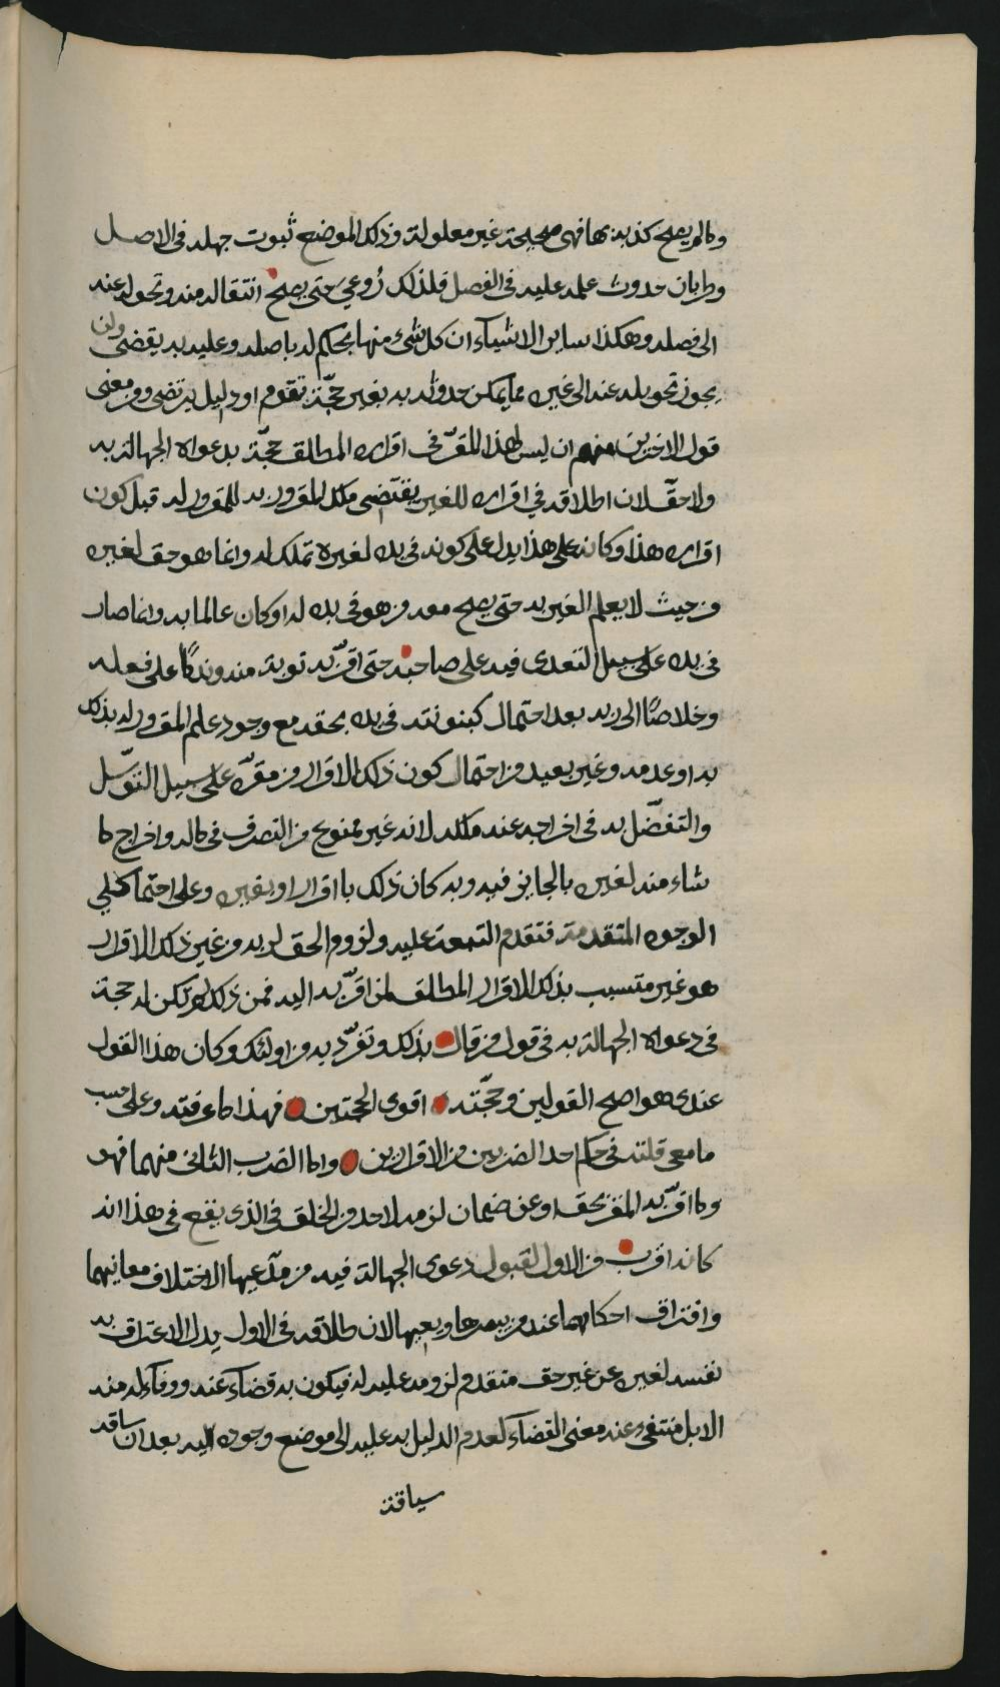 وما لم يصح كذبه بها فهي صحيحة غير معلولة وذلك الموضع ثبوت جهله في الاصل
وطريان حدوث علمه عليه في الفصل فلذلك رُوعي حتى يصح انتقاله منه وتحوله عنه
الى فصله وهكذا ساير الاشيآء ان كل شيء منها يحكم له باصله وعليه به يقضى ولن
يجوز تحويله عنه الى غيره مما يمكن حدوثه به بغير حجّة تقوم او دليل يرتضى ومن معنى
قول الاخرين منهم ان ليس لهذا المقرّ في اقراره المطلق حجّة بدعواه الجهالة به
ولا حقّ لان اطلاقه في اقراره للغير يقتضي ملك المقرور به للمقرور له قبل كون
اقراره هذا وكانه على هذا يدل على كونه في يده لغيره تملك له وانما هو حق لغيره
من حيث لا يعلم الغير به حتى يصح معه من هو في يده له او كان عالما به وانما صار
في يده على سبيل التعدى فيه على صاحبه حتى اقرّ به توبة منه وندمًا على فعله
وخلاصًا الى ربه بعد احتمال كينونته في يده بحقه مع وجود علم المقرور له بذلك
به او عدمه وغير بعيد من احتمال كون ذلك الاقرار من مقرّه على سبيل التوسّل
والتفضّل به في اخراجه عنه ملكه لانه غير ممنوع من التصرف في ماله واخراج ما
شاء منه لغيره بالجايز فيه وبه كان ذلك باقرار او بغيره وعلى احتمال كلي
الوجوه المتقدمة فتقدم التبعة عليه ولزوم الحق له به من غير ذلك الاقرار
هو غير متسبب بذلك الاقرار المطلق لمن اقرّ به اليه فمن ذلك لم يكن له حجة
في دعواه الجهالة به في قول من قال بذلك وتفرّد به من اولئك وكان هذا القول
عندى هو اصح القولين وحجّته اقوى الحجتين فهذا ما عرفته وعلى حسب
ما معي قلته في حكم احد الضربين من الاقرارين واما الضرب الثانى منهما فهو
وما اقرّ به المقر بحق او عن ضمان لزمه لاحد من الخلق فالذى يقع في هذا انه
كانه اقرب من الاول لقبول دعوى الجهالة فيه من مدّعيها لاختلاف معانيهما
وافتراق احكامهما عند من يبصرها ويعيها لان اطلاقه في الاول يدل الاعتراف به
نفسه لغيره عن غير حق متقدم لزومه عليه له فيكون به قضآء عنه ووفآء له منه
لا بل منتفى عنه معنى القضآء لعدم الدليل به عليه الى موضع وجوده اليه بعد ان ساقه
سياقة